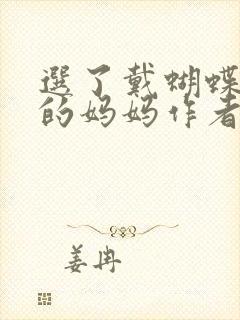 選了戴蝴蝶
的妈妈作者
姜冉